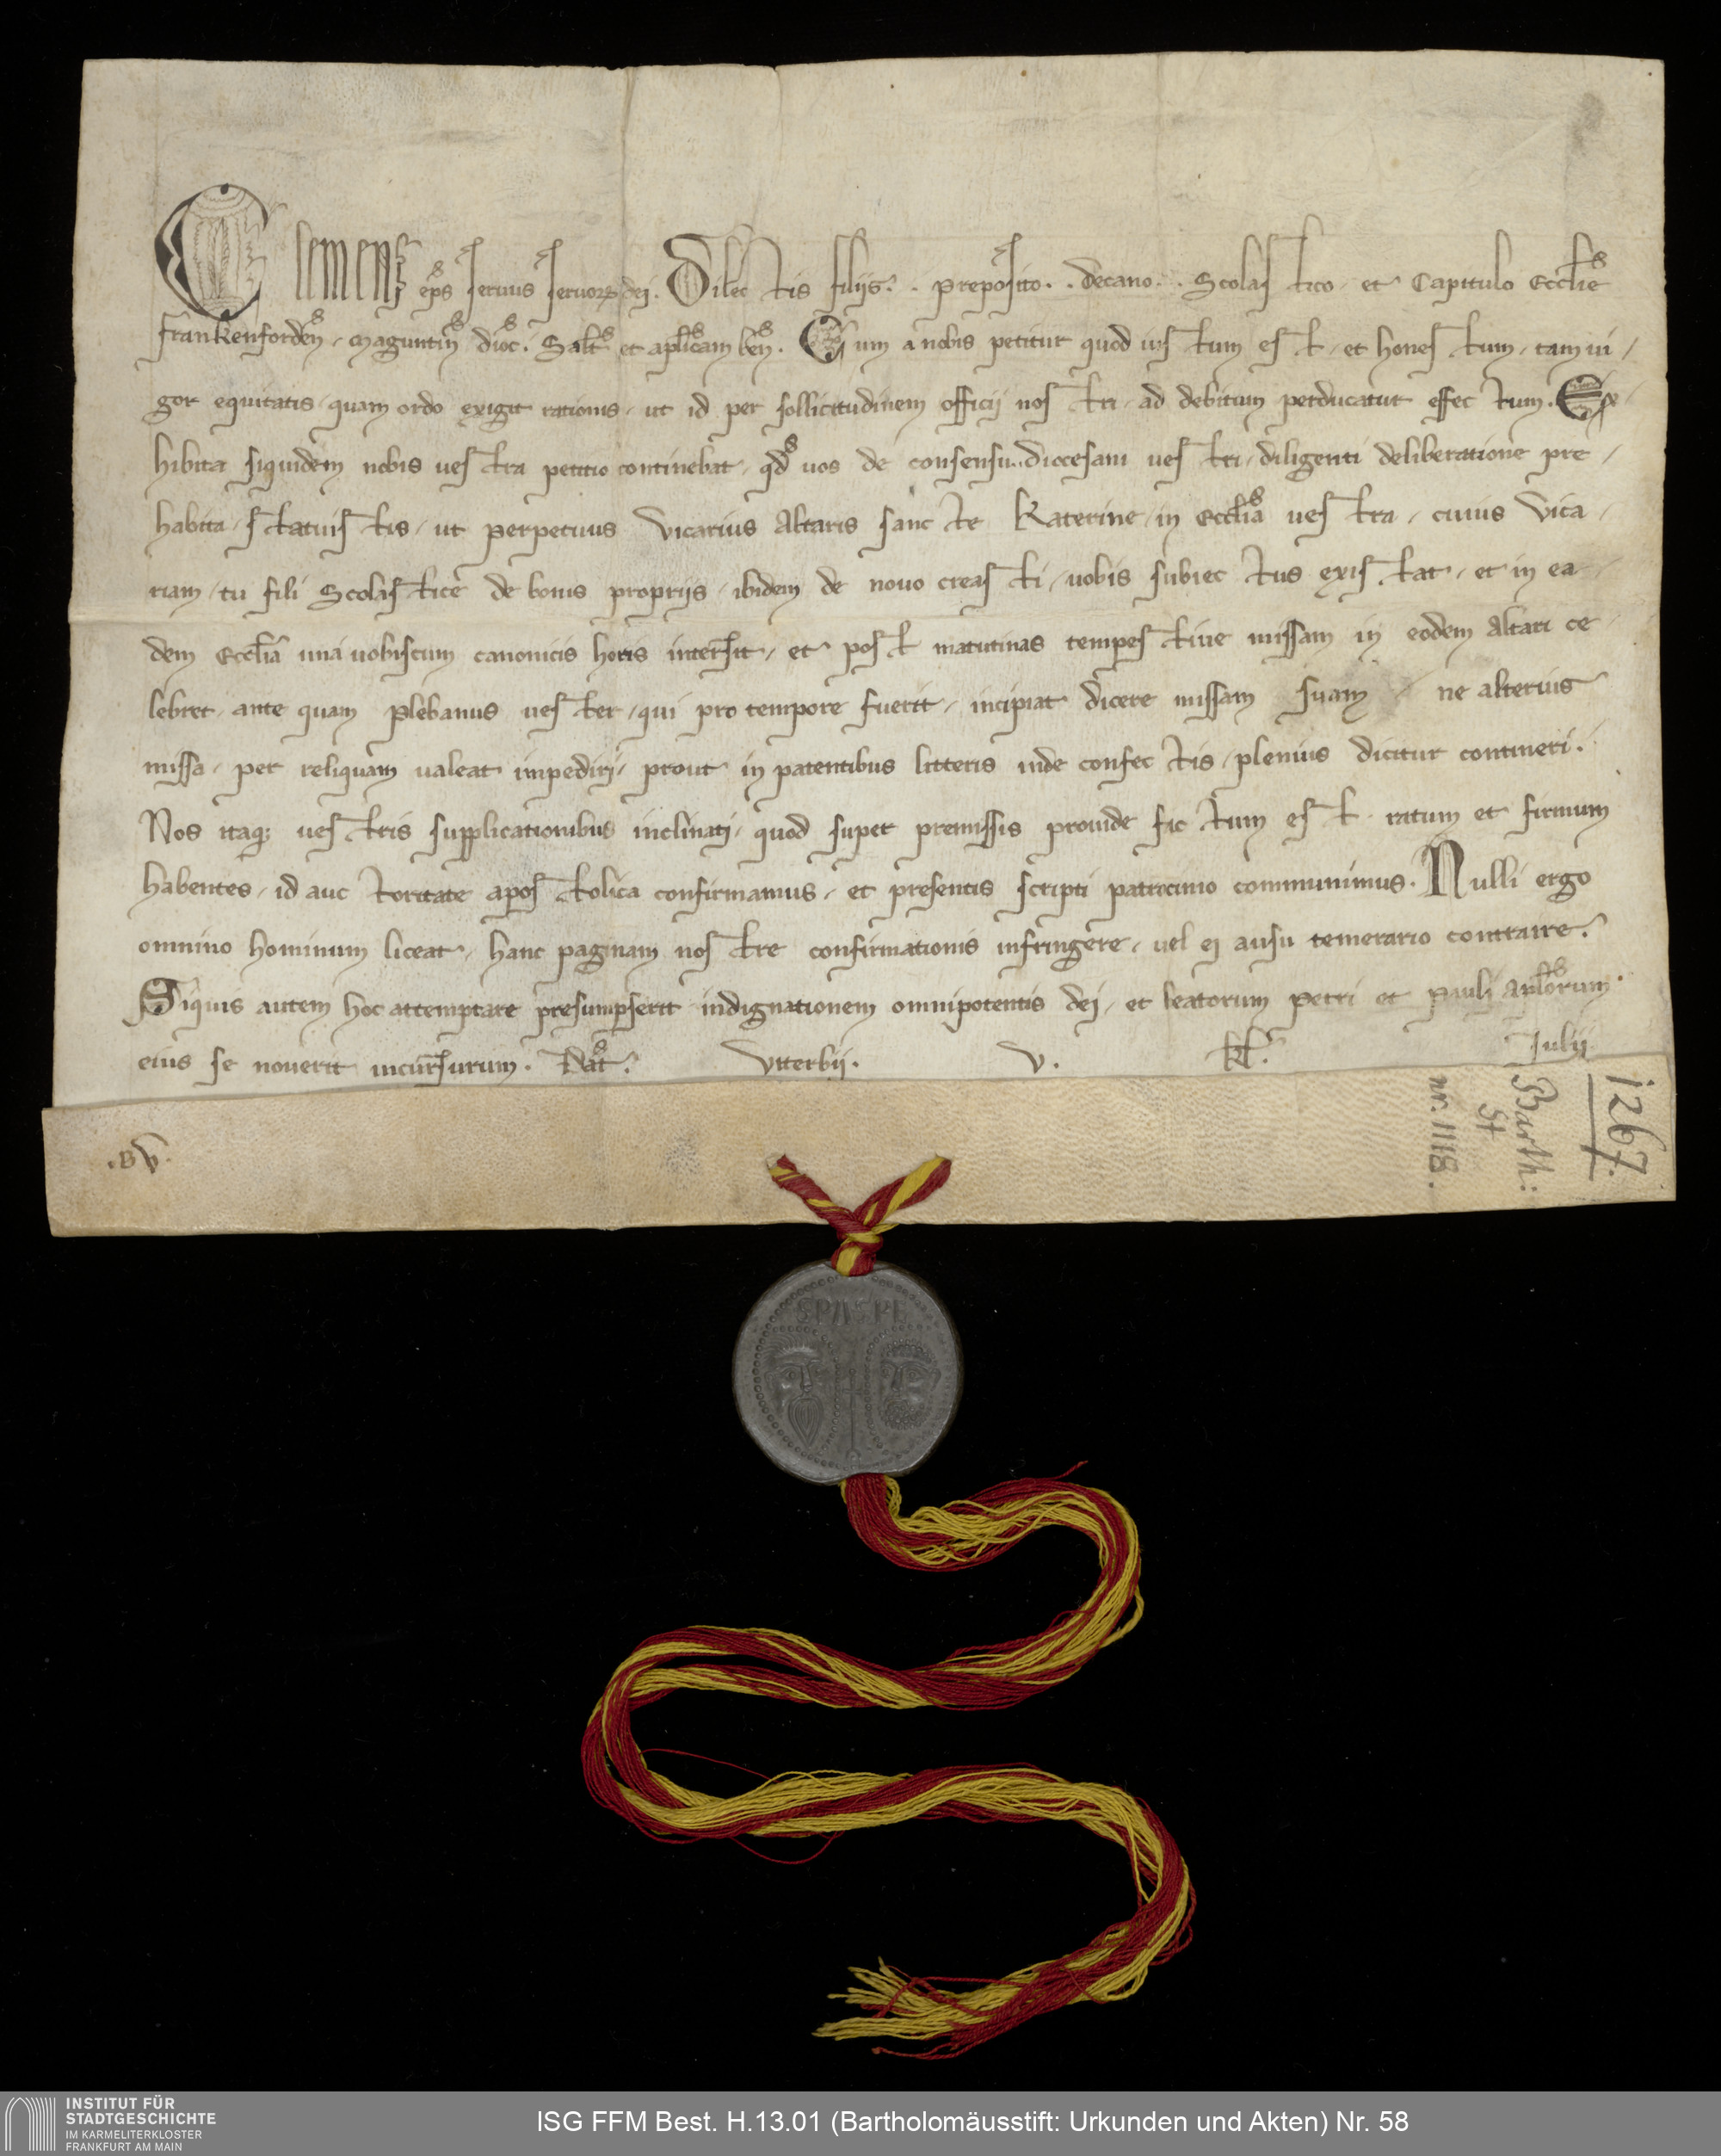 Clemens ep̄s seruus seruoꝝ dei. Dilectis filijs . . Preposito . . Decano . . Scolastico et Capitulo Eccl̄ie
Frankenforden̄, Maguntin̄ dioc̄. Salt̄ et apl̄icam ben̄. Cum a nobis petitur quod iustum est et honestum, tam ui-
gor equitatis, quam ordo exigit rationis, ut id per sollicitudinem officij nostri, ad debitum perducatur effectum. Ex-
hibita siquidem nobis uestra petitio continebat, qd̄ uos de consensu . . diocesani uestri, diligenti deliberatione pre-
habita, statuistis, ut perpetuus Vicarius Altaris sancte Katerine, in Eccl̄ia uestra, cuius Vica-
riam, tu fili Scolastice de bonis proprijs, ibidem de nouo creasti, uobis subiectus existat, et in ea-
dem Eccl̄ia una uobiscum canonicis horis intersit, et post matutinas tempestiue missam in eodem Altari ce-
lebret, ante quam Plebanus uester, qui pro tempore fuerit, incipiat dicere missam suam, ne alterius
missa, per reliquam ualeat impediri, prout in patentibus litteris inde confectis, plenius dicitur contineri.
Nos itaq; uestris supplicationibus inclinati, quod super premissis prouide factum est ratum et firmum
habentes, id auctoritate apostolica confirmamus, et presentis scripti patrocinio communimus. Nulli ergo
omnino hominum liceat, hanc paginam nostre confirmationis infringere, uel ei ausu temerario contraire.
Siquis autem hoc attemptare presumpserit indignationem omnipotentis dei, et beatorum Petri et Pauli Apl̄orum
eius se nouerit incursurum. Dat̄. Viterbij. V. kl̄. Julij
1267.
Barth:
St
nr. 1118.
SPASPE
INSTITUT FÜR
STADTGESCHICHTE
IM KARMELITERKLOSTER
FRANKFURT AM MAIN
ISG FFM Best. H.13.01 (Bartholomäusstift: Urkunden und Akten) Nr. 58